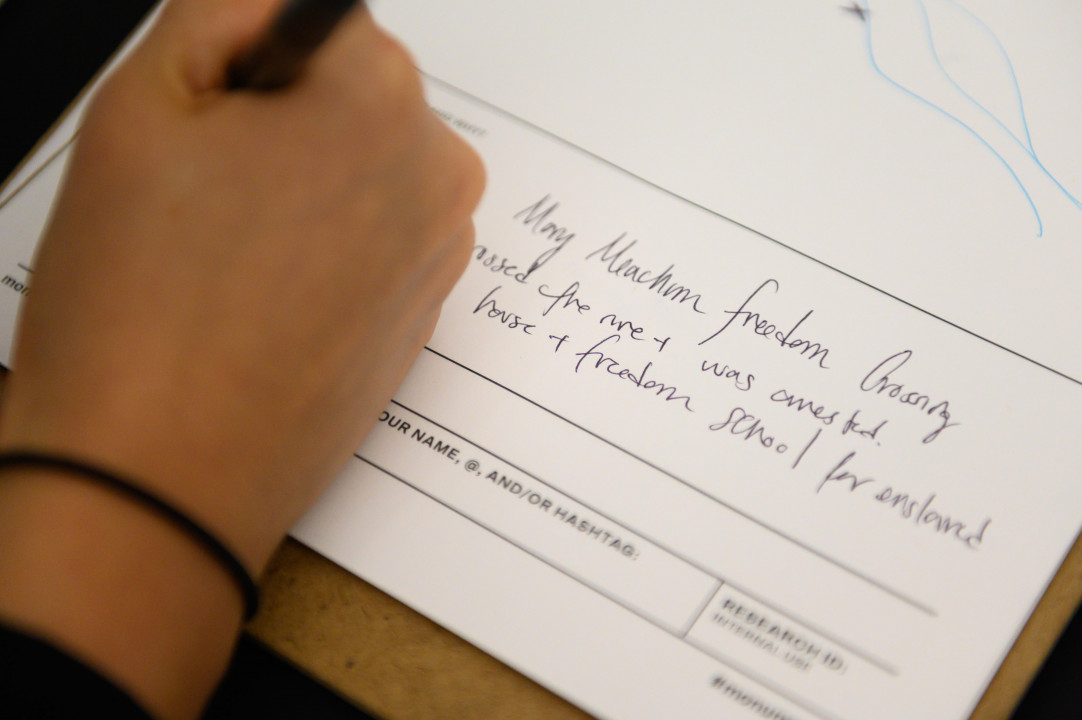 Mary Meachum freedom Crossing
rossed the river + was arrested.
house + freedom school for enslaved
OUR NAME, @, AND/OR HASHTAG:
RESEARCH ID:
INTERNAL USE
#monum